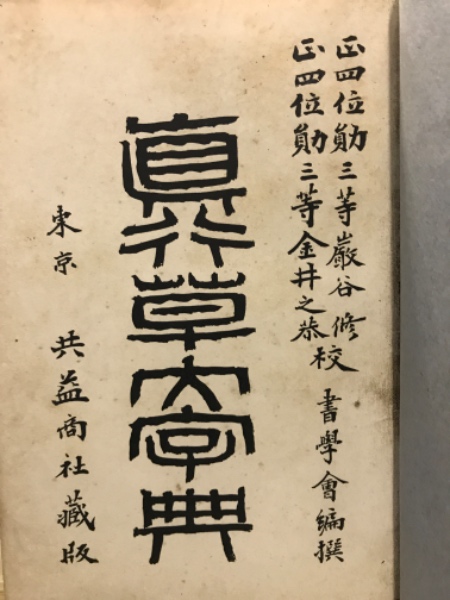 正四位勛三等巖谷修
正四位勛三等金井之恭校
書學會編撰
真行草大字典
東京 共益商社藏版